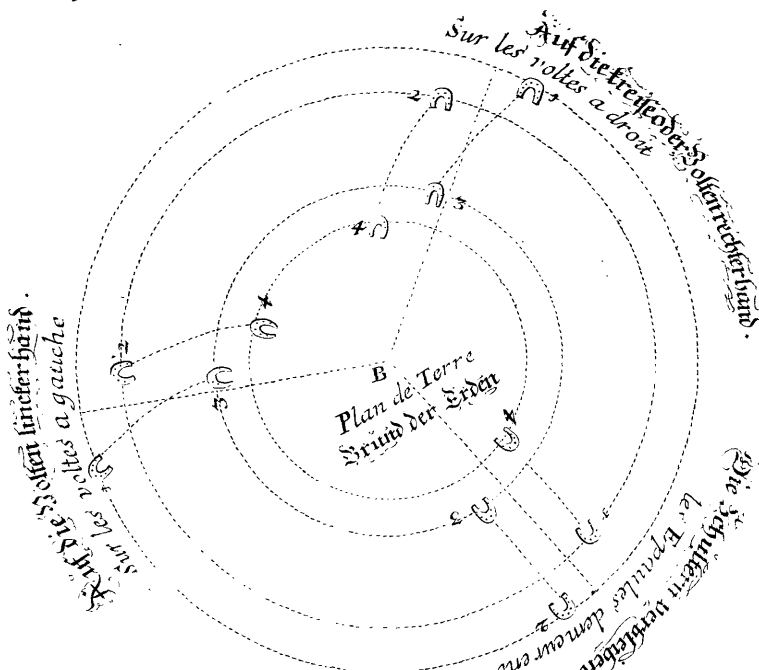 Auf die kreise oder Volten rechter hand.
Sur les voltes a droit
2
1
3
4
4
2
3
Auf die Volten lincker hand.
Sur les voltes a gauche
B
Plan de Terre
Grund der Erden
4
3
2
Die Schultern verbleiben
les Epaules demeuren